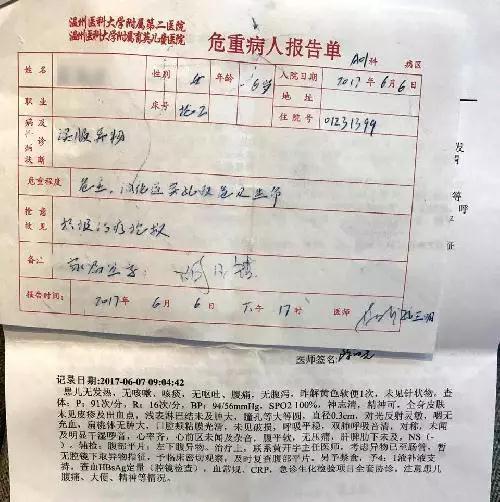 温州医科大学附属第二医院
温州医科大学附属育英儿童医院
危重病人报告单
科 病区
姓名 性别 女 年龄 岁 入院日期 2017年6月6日
职业 床号 地址
住院号 01231399
病及诊 误服异物
危重程度 危重,消化道
抢意救见 积极治疗抢救
备注 家属签字:
报告时间: 2017年 6月 6日 下午 17时 医师
医师签名:
记录日期:2017-06-07 09:04:42
患儿无发热,无咳嗽、咳痰,无呕吐、腹痛,无腹泻,昨解黄色软便1次,未见针状物,查
体:P:91次/分:R:16次/分:BP:94/56mmHg,SPO2 100%,神志清,精神可,全身皮肤
未见皮疹及出血点,浅表淋巴结未及肿大,瞳孔等大等圆,直径0.3cm,对光反射灵敏,咽无
充血,扁桃体无肿大,口腔颊粘膜光滑,未见破损,呼吸平稳,双肺呼吸音清,对称,未闻
及明显干湿啰音,心率齐,心前区未闻及杂音,腹平软,无压痛,肝脾肋下未及,NS(-
)。辅检:腹部平片:左下腹异物。治疗上:联系黄开宇主任医师,考虑异物已至肠管,暂
无腔镜下取异物指征,予临床密切观察,及时复查腹部平片,另予禁食,予4:1液补液支
持。查血HBsAg定量(腔镜检查),血常规、CRP、急诊生化检验项目全套筛诊,注意患儿
腹痛、大便、精神等情况。